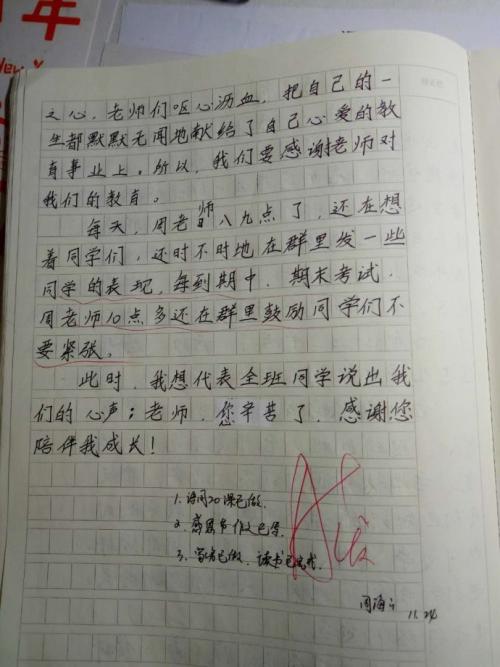 年
之心，老师们呕心沥血，把自己的一
生都默默无闻地献给了自己心爱的教
育事业上。所以，我们要感谢老师对
我们的教育。
每天，周老师八九点了，还在想
着同学们，还时不时地在群里发一些
同学的表现，每到期中、期末考试，
周老师10点多还在群里鼓励同学们不
要紧张。
此时，我想代表全班同学说出我
们的心声：老师，您辛苦了，感谢您
陪伴我成长！
1. 20课已做.
2. 感恩节作文已写.
3. 已做. 读书已完成.
A
周海
11.24